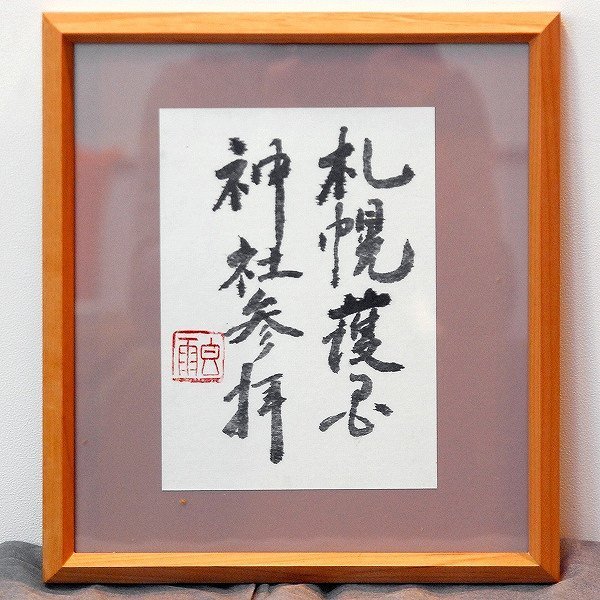 札幌護国
神社参拝